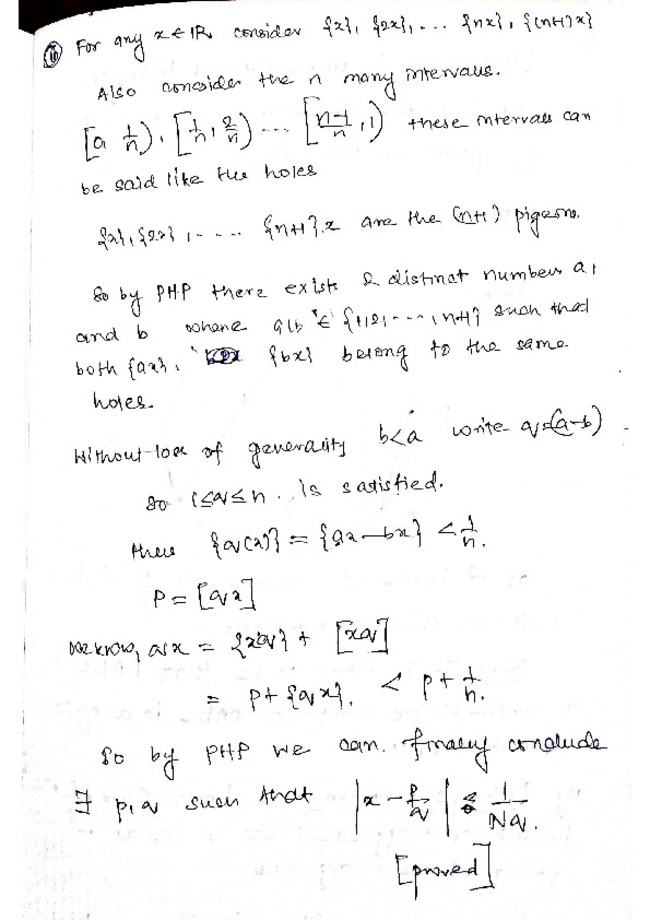 ⑩ For any x ∈ IR, consider {x}, {2x}, ... {nx}, {(n+1)x}
Also consider the n many intervals.
[0 1/n), [1/n, 2/n) ... [n-1/n, 1) these intervals can
be said like the holes
{x}, {2x}, ..... {n+1}x are the (n+1) pigeons.
So by PHP there exists 2 distinct numbers a,
and b where a,b ∈ {1,2,...,n+1} such that
both {ax}, {bx} belong to the same
holes.
Without loss of generality b<a write q=(a-b)
So 1≤q≤n. is satisfied.
then {q(x)} = {ax-bx} < 1/n.
P = [qx]
we know, qx = {xq} + [xq]
= p+ {qx}. < p+ 1/n.
So by PHP we can. finally conclude
∃ p,q such that |x - p/q| ≤ 1/Nq.
[proved]